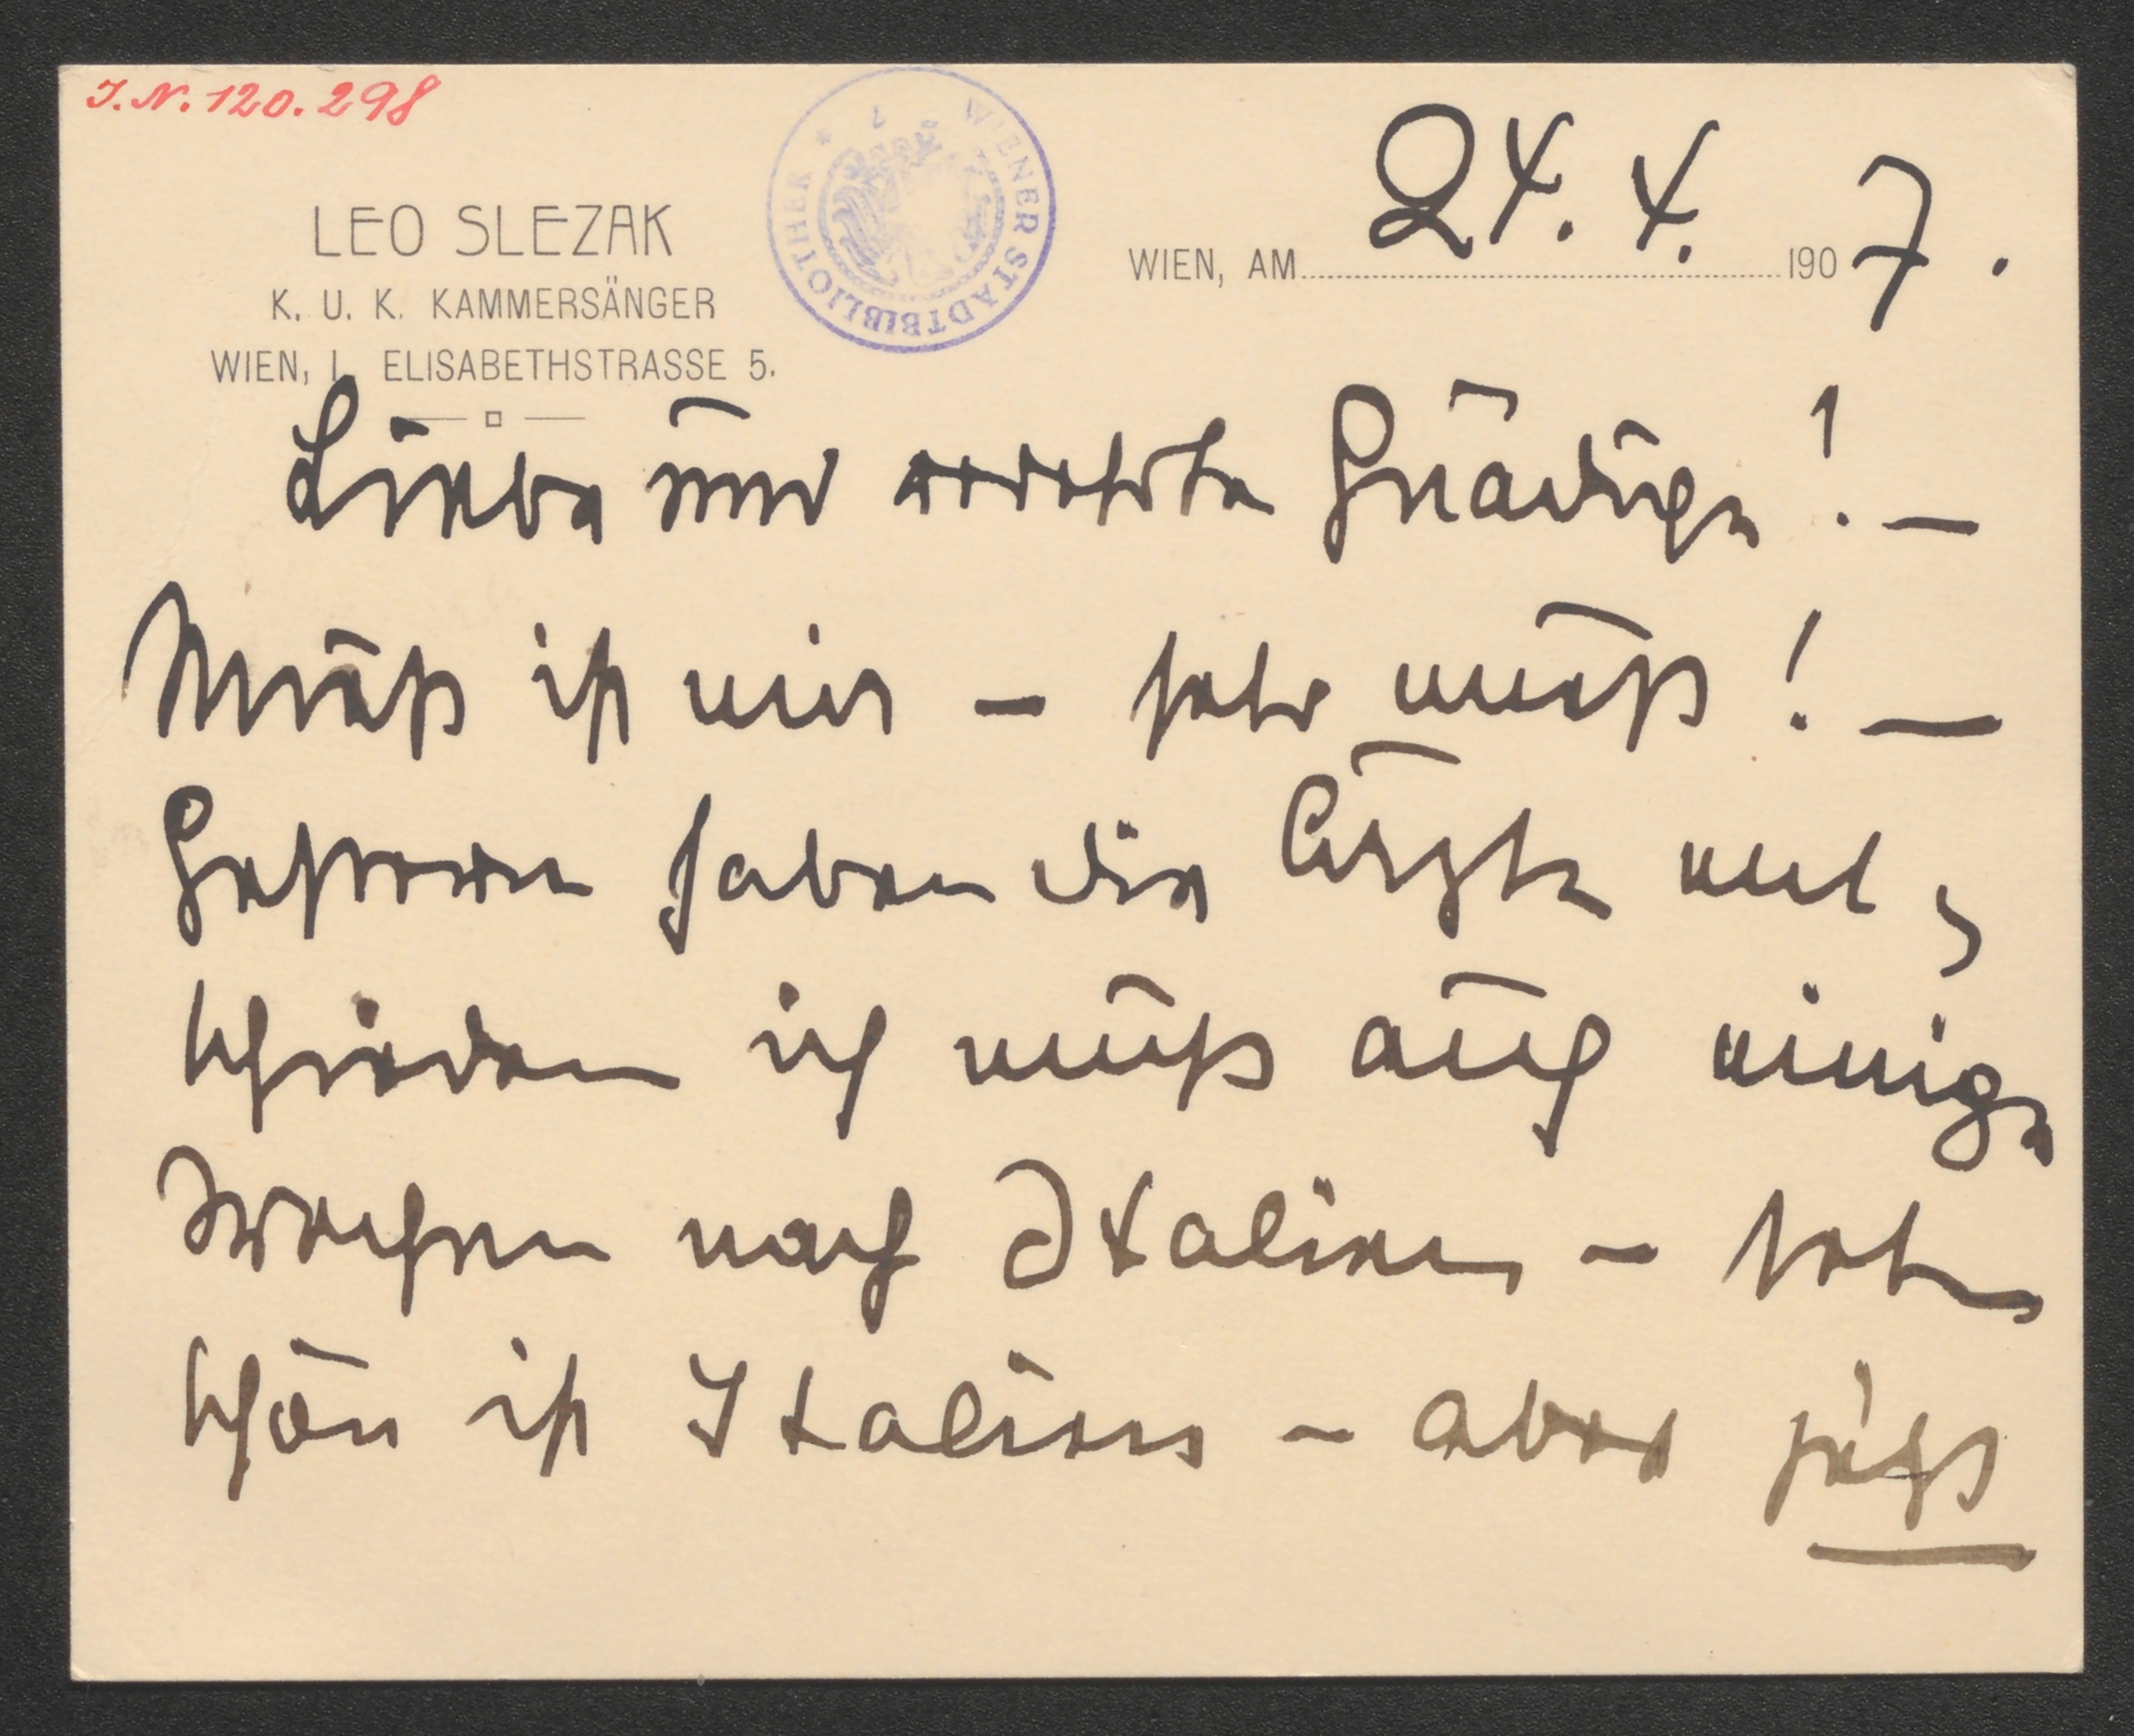 I.N. 120.298
WIENER STADTBIBLIOTHEK
LEO SLEZAK
K. U. K. KAMMERSÄNGER
WIEN, I. ELISABETHSTRASSE 5.
WIEN, AM 24. 4. 1907.
Liebe und verehrte Gnädige! –
Mieß ist mir – sehr mieß! –
Gestern haben die Ärzte ent-
schieden ich muß auf einige
Wochen nach Italien – sehr
schön ist Italien – aber jetzt